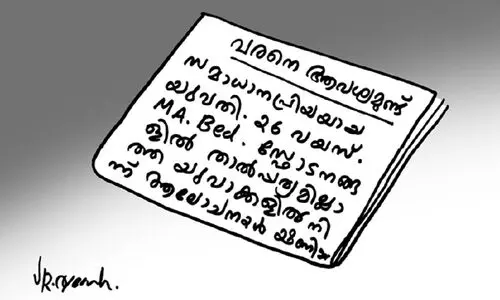 വരനെ ആവശ്യമുണ്ട്
സമാധാനപ്രിയയായ
യുവതി. 26 വയസ്.
MA. Bed. സ്ഫോടനങ്ങ
ളിൽ താൽപര്യമില്ലാ
ത്ത യുവാക്കളിൽ നി
ന്ന് ആലോചനകൾ